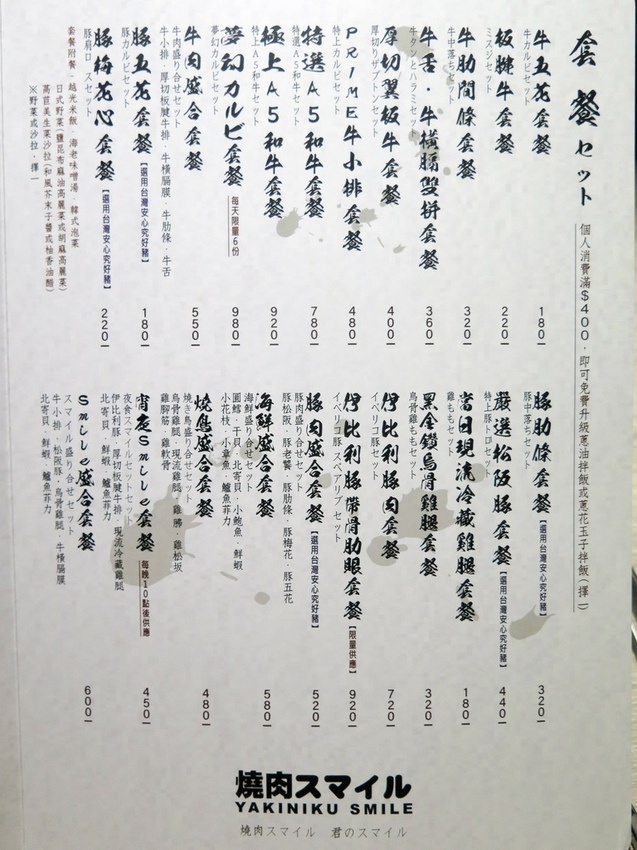 套餐セット
個人消費滿$400，即可免費升級蔥油拌飯或蔥花玉子拌飯(擇一)
牛五花套餐 180
牛カルビセット
板腱牛套餐 220
ミスジセット
牛肋間條套餐 320
牛中落ちセット
牛舌·牛橫膈雙拼套餐 360
牛タンとハラミセット
厚切翼板牛套餐 400
厚切りザブトンセット
PRIME牛小排套餐 480
特上カルビセット
特選A5和牛套餐 780
特選A5和牛セット
極上A5和牛套餐 920
特上A5和牛セット
夢幻カルビ套餐 每天限量6份 980
夢幻カルビセット
牛肉盛合套餐 550
牛肉盛り合せセット
牛小排·厚切板腱牛排·牛橫膈膜·牛肋條·牛舌
豚五花套餐【選用台灣安心究好豬】 180
豚カルビセット
豚梅花心套餐【選用台灣安心究好豬】 220
豚肩ロースセット
套餐附餐-越光米飯·海老味噌湯·韓式泡菜
日式野菜(鹽昆布麻油高麗菜或胡麻高麗菜)
萵苣美生菜沙拉(和風芥末子醬或柚香油醋)
※野菜或沙拉，擇一
豚肋條套餐【選用台灣安心究好豬】 320
豚中落ちセット
嚴選松阪豚套餐【選用台灣安心究好豬】 440
特上豚トロセット
當日現流冷藏雞腿套餐 180
雞ももセット
黑金鑽烏骨雞腿套餐 320
烏骨雞ももセット
伊比利豚肉套餐 720
イベリコ豚セット
伊比利豚帶骨肋眼套餐【限量供應】 920
イベリコ豚スペアリブセット
豚肉盛合套餐【選用台灣安心究好豬】 520
豚肉盛り合せセット
豚松阪·豚老饕·豚肋條·豚梅花·豚五花
海鮮盛合套餐 580
海鮮盛り合せセット
圓鱈·干貝·北寄貝·小鮑魚·鮮蝦
小花枝·小章魚·鱸魚菲力
燒鳥盛合套餐 480
燒き鳥盛り合せセット
烏骨雞腿·現流雞腿·雞胸·雞松坂
雞腳筋·雞軟骨
宵夜Smile套餐 每晚10點後供應 450
夜食スマイルセットセット
伊比利豚·厚切板腱牛排·現流冷藏雞腿
北寄貝·鮮蝦·鱸魚菲力
Smile盛合套餐 600
スマイル盛り合せセット
牛小排·松阪豚·烏骨雞腿·牛橫膈膜
北寄貝·鮮蝦·鱸魚菲力
燒肉スマイル
YAKINIKU SMILE
燒肉スマイル 君のスマイル